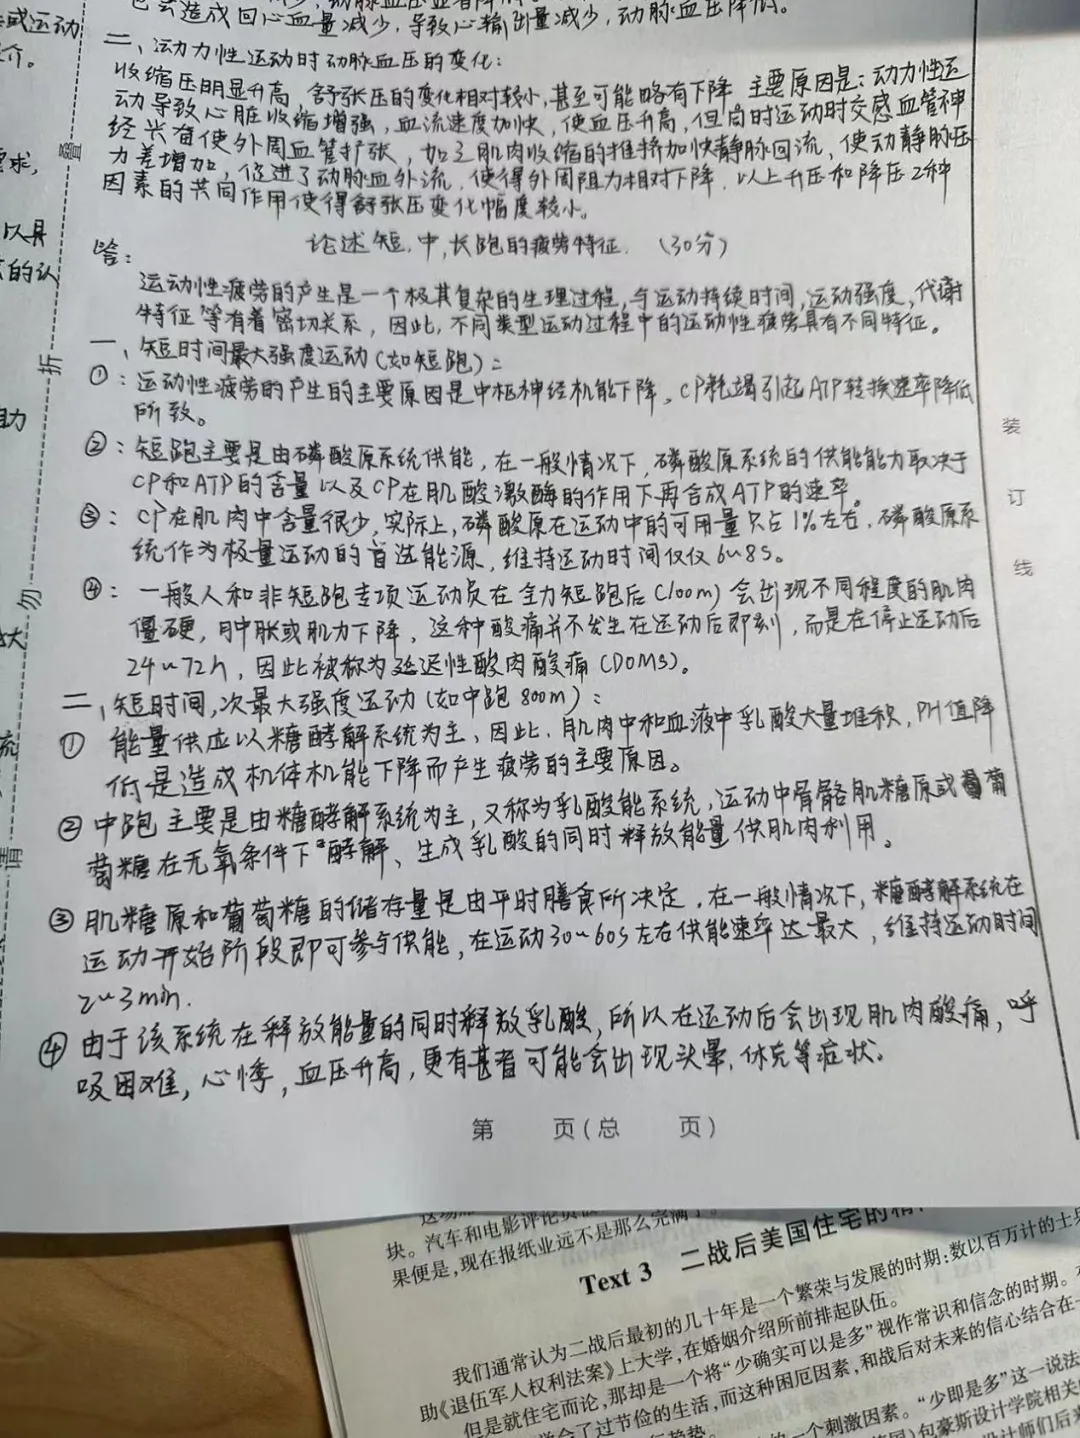 也会造成回心血量减少,导致心输出量减少,动脉血压降低。
二、动力性运动时动脉血压的变化:
收缩压明显升高,舒张压的变化相对较小,甚至可能略有下降 主要原因是:动力性运
动导致心脏收缩增强,血流速度加快,使血压升高,但同时运动时交感血管神
经兴奋使外周血管扩张,加之肌肉收缩的推挤加快静脉回流,使动静脉压
力差增加,促进了动脉血外流,使得外周阻力相对下降,以上升压和降压2种
因素的共同作用使得舒张压变化幅度较小。
论述短.中,长跑的疲劳特征.(30分)
答:
运动性疲劳的产生是一个极其复杂的生理过程,与运动持续时间,运动强度,代谢
特征等有着密切关系,因此,不同类型运动过程中的运动性疲劳具有不同特征。
一、短时间最大强度运动(如短跑):
①:运动性疲劳的产生的主要原因是中枢神经机能下降,CP耗竭引起ATP转换速率降低
所致。
②:短跑主要是由磷酸原系统供能,在一般情况下,磷酸原系统的供能能力取决于
CP和ATP的含量以及CP在肌酸激酶的作用下再合成ATP的速率。
③:CP在肌肉中含量很少,实际上,磷酸原在运动中的可用量只占1%左右,磷酸原系
统作为极量运动的首选能源,维持运动时间仅仅6~8s。
④:一般人和非短跑专项运动员在全力短跑后(100m)会出现不同程度的肌肉
僵硬,肿胀或肌力下降,这种酸痛并不发生在运动后即刻,而是在停止运动后
24~72h,因此被称为延迟性酸肉酸痛(DOMS)。
二、短时间,次最大强度运动(如中跑800m):
① 能量供应以糖酵解系统为主,因此,肌肉中和血液中乳酸大量堆积,PH值降
低是造成机体机能下降而产生疲劳的主要原因。
②中跑主要是由糖酵解系统为主,又称为乳酸能系统,运动中骨骼肌糖原或葡
萄糖在无氧条件下酵解、生成乳酸的同时释放能量供肌肉利用。
③肌糖原和葡萄糖的储存量是由平时膳食所决定,在一般情况下,糖酵解系统在
运动开始阶段即可参与供能,在运动30~60s左右供能速率达最大,维持运动时间
2~3min.
④由于该系统在释放能量的同时释放乳酸,所以在运动后会出现肌肉酸痛,呼
吸困难,心悸,血压升高,更有甚者可能会出现头晕.休克等症状。
第 页(总 页)
或运动
介。
要求,
以具
的认
助
大
流
叠
折
勿
请
装
订
线
块。汽车和电影评论员
果便是,现在报纸业远不是那么完满了。
Text 3 二战后美国住宅的
我们通常认为二战后最初的几十年是一个繁荣与发展的时期:数以百万计的士兵
助《退伍军人权利法案》上大学,在婚姻介绍所前排起队伍。
但是就住宅而论,那却是一个将“少确实可以是多”视作常识和信念的时期。
学会了过节俭的生活,而这种困厄因素,和战后对未来的信心结合在一
的一个刺激因素。“少即是多”这一说法
包豪斯设计学院相关